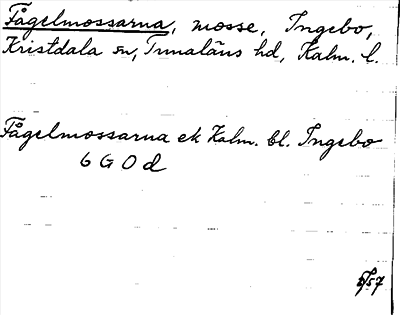 Fågelmossarna, mosse, Ingebo,
Kristdala sn, Tunaläns hd, Kalm. l.
Fågelmossarna ek Kalm. bl. Ingebo
6 G O d